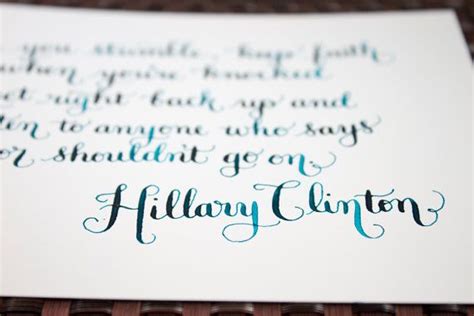 you stumble, keep faith
when you're knocked
get right back up and
ten to anyone who says
or shouldn't go on.
Hillary Clinton